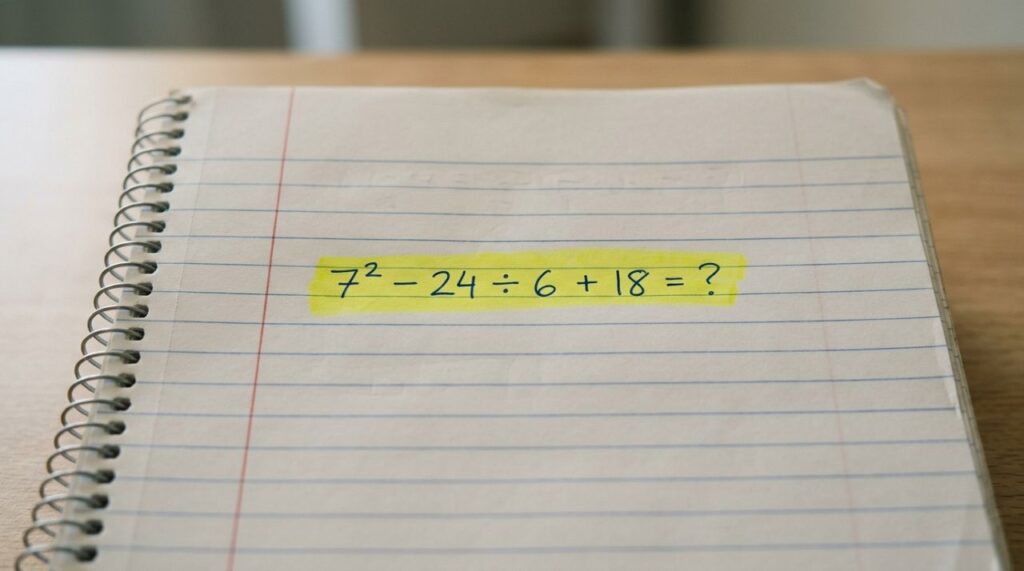 7² − 24 ÷ 6 + 18 = ?